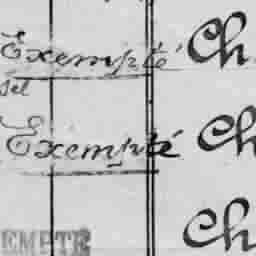 Exempté Ch
Sel
Exempté Ch
EMPTE Ch